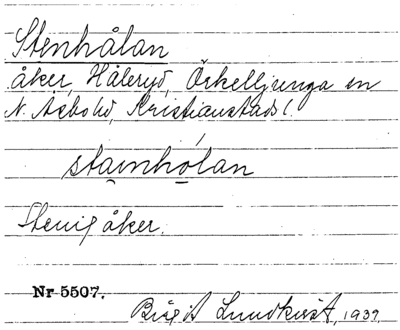 Stenhålan
åker, Håleryd, Örkelljunga sn
N. Åsbo hd, Kristianstads l.
stainholan
Stenig åker.
Nr 5507.
Birgit Lundkvist, 1937.